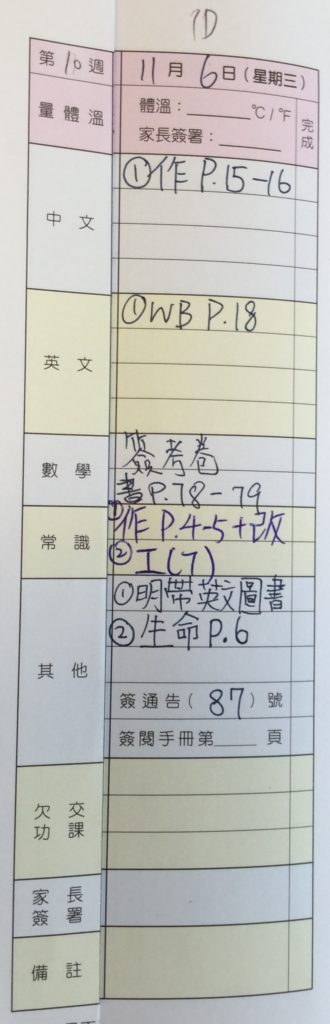 1D
第10週 11月6日(星期三)
量體溫 體溫:______℃/℉ 完成
家長簽署:______
中文 ①作 P.15-16
英文 ①WB P.18
數學 簽考卷
書P.78-79
常識 ①作 P.4-5+改
②工(7)
其他 ①明帶英文圖書
②生命P.6
簽通告(87)號
簽閱手冊第____頁
欠交功課
家長簽署
備註